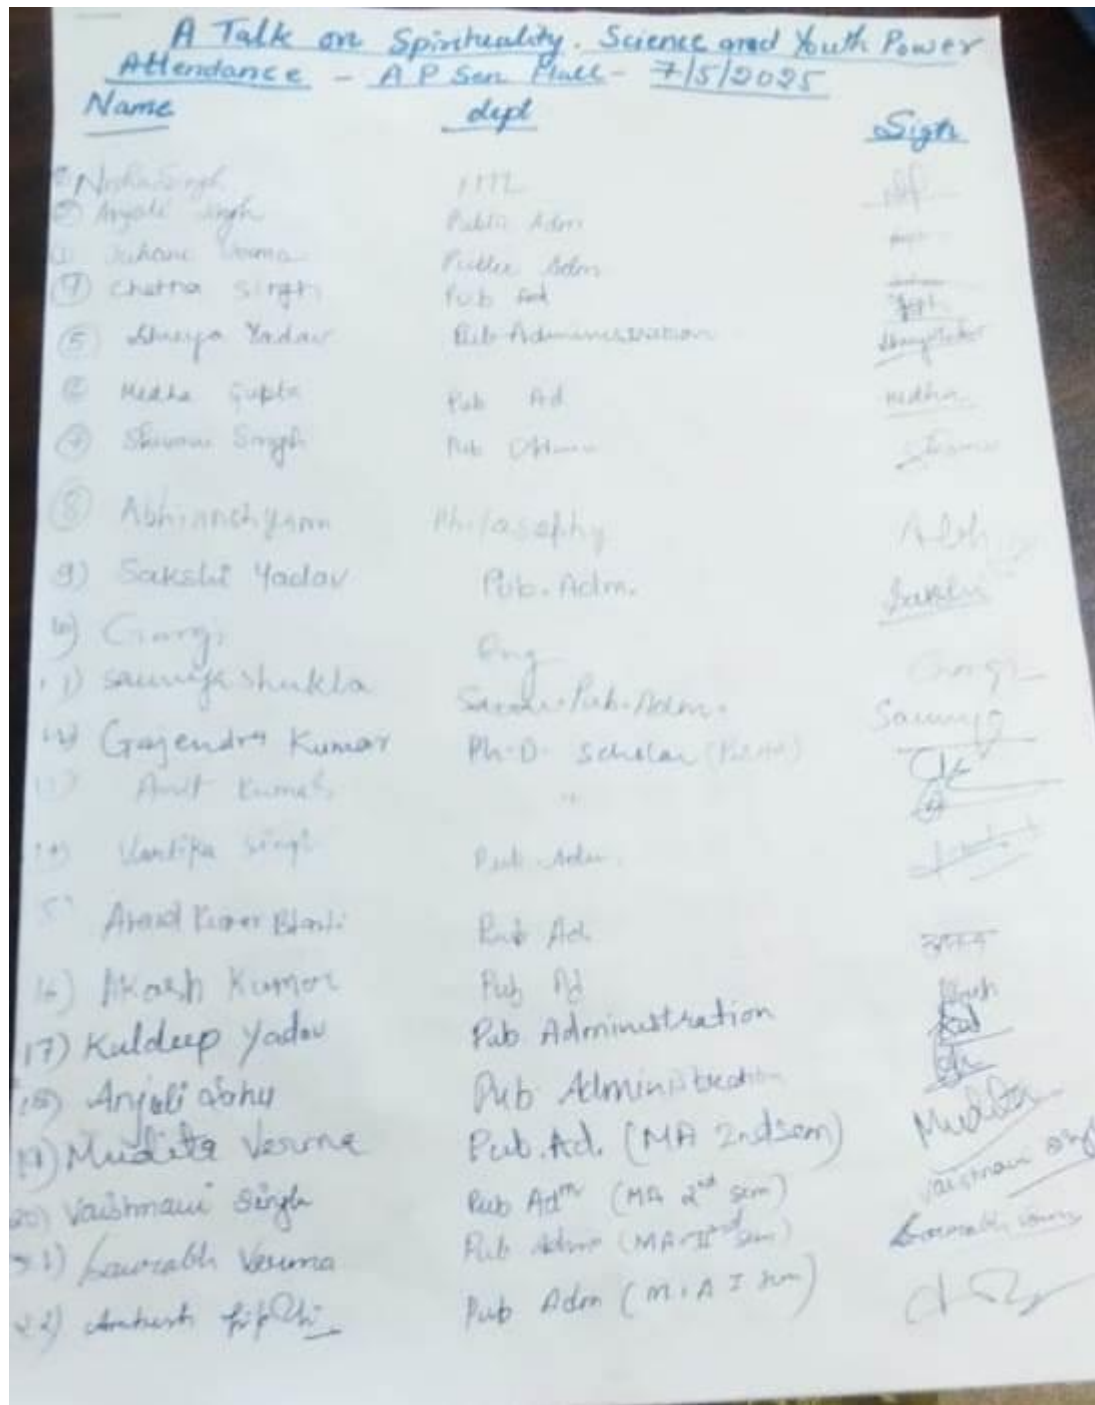 A Talk on Spirituality, Science and Youth Power
Attendance - A P Sen Hall - 7/5/2025
Name dept Sign
Singh
② Anjali Singh Public Adm
Verma Public Adm
④ Chetna Singh Pub Ad
⑤ Shreya Yadav Pub Administration
⑥ Medha Gupta Pub Ad Medha
⑦ Shivani Singh Pub
⑧ Philosophy Abh
9) Sakshi Yadav Pub. Adm. Sakshi
10) Gargi Eng Gargi
11) Saumya Shukla Pub. Adm. Saumya
12) Gajendra Kumar Ph.D. Scholar
13) Amit Kumar "
14) Vartika Singh Pub. Adm.
Kumar Pub Ad
16) Akash Kumar Pub Ad
17) Kuldeep Yadav Pub Administration
18) Anjali Sahu Pub Administration
19) Mudita Verma Pub. Ad. (MA 2nd sem) Mudita
20) Vaishnavi Singh Pub Adm (MA 2nd sem) Vaishnavi Singh
21) Saurabh Verma Pub Admn (MA II sem) Saurabh Verma
22) Pub Adm (M.A I sem)